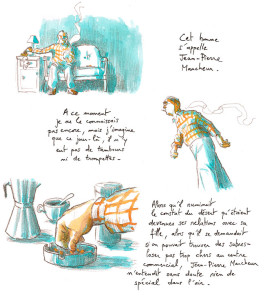 Cet homme
s'appelle
Jean-Pierre
Mancheur.
A ce moment
je ne le connaissais
pas encore, mais j'imagine
que ce jour-là, il n'y
eut pas de tambours
ni de trompettes.
Alors qu'il ruminait
le constat du désert qu'étaient
devenues ses relations avec sa
fille, alors qu'il se demandait
si on pouvait trouver des
pas trop chers au centre
commercial, Jean-Pierre Mancheur
n'entendit sans doute rien de
spécial dans l'air.